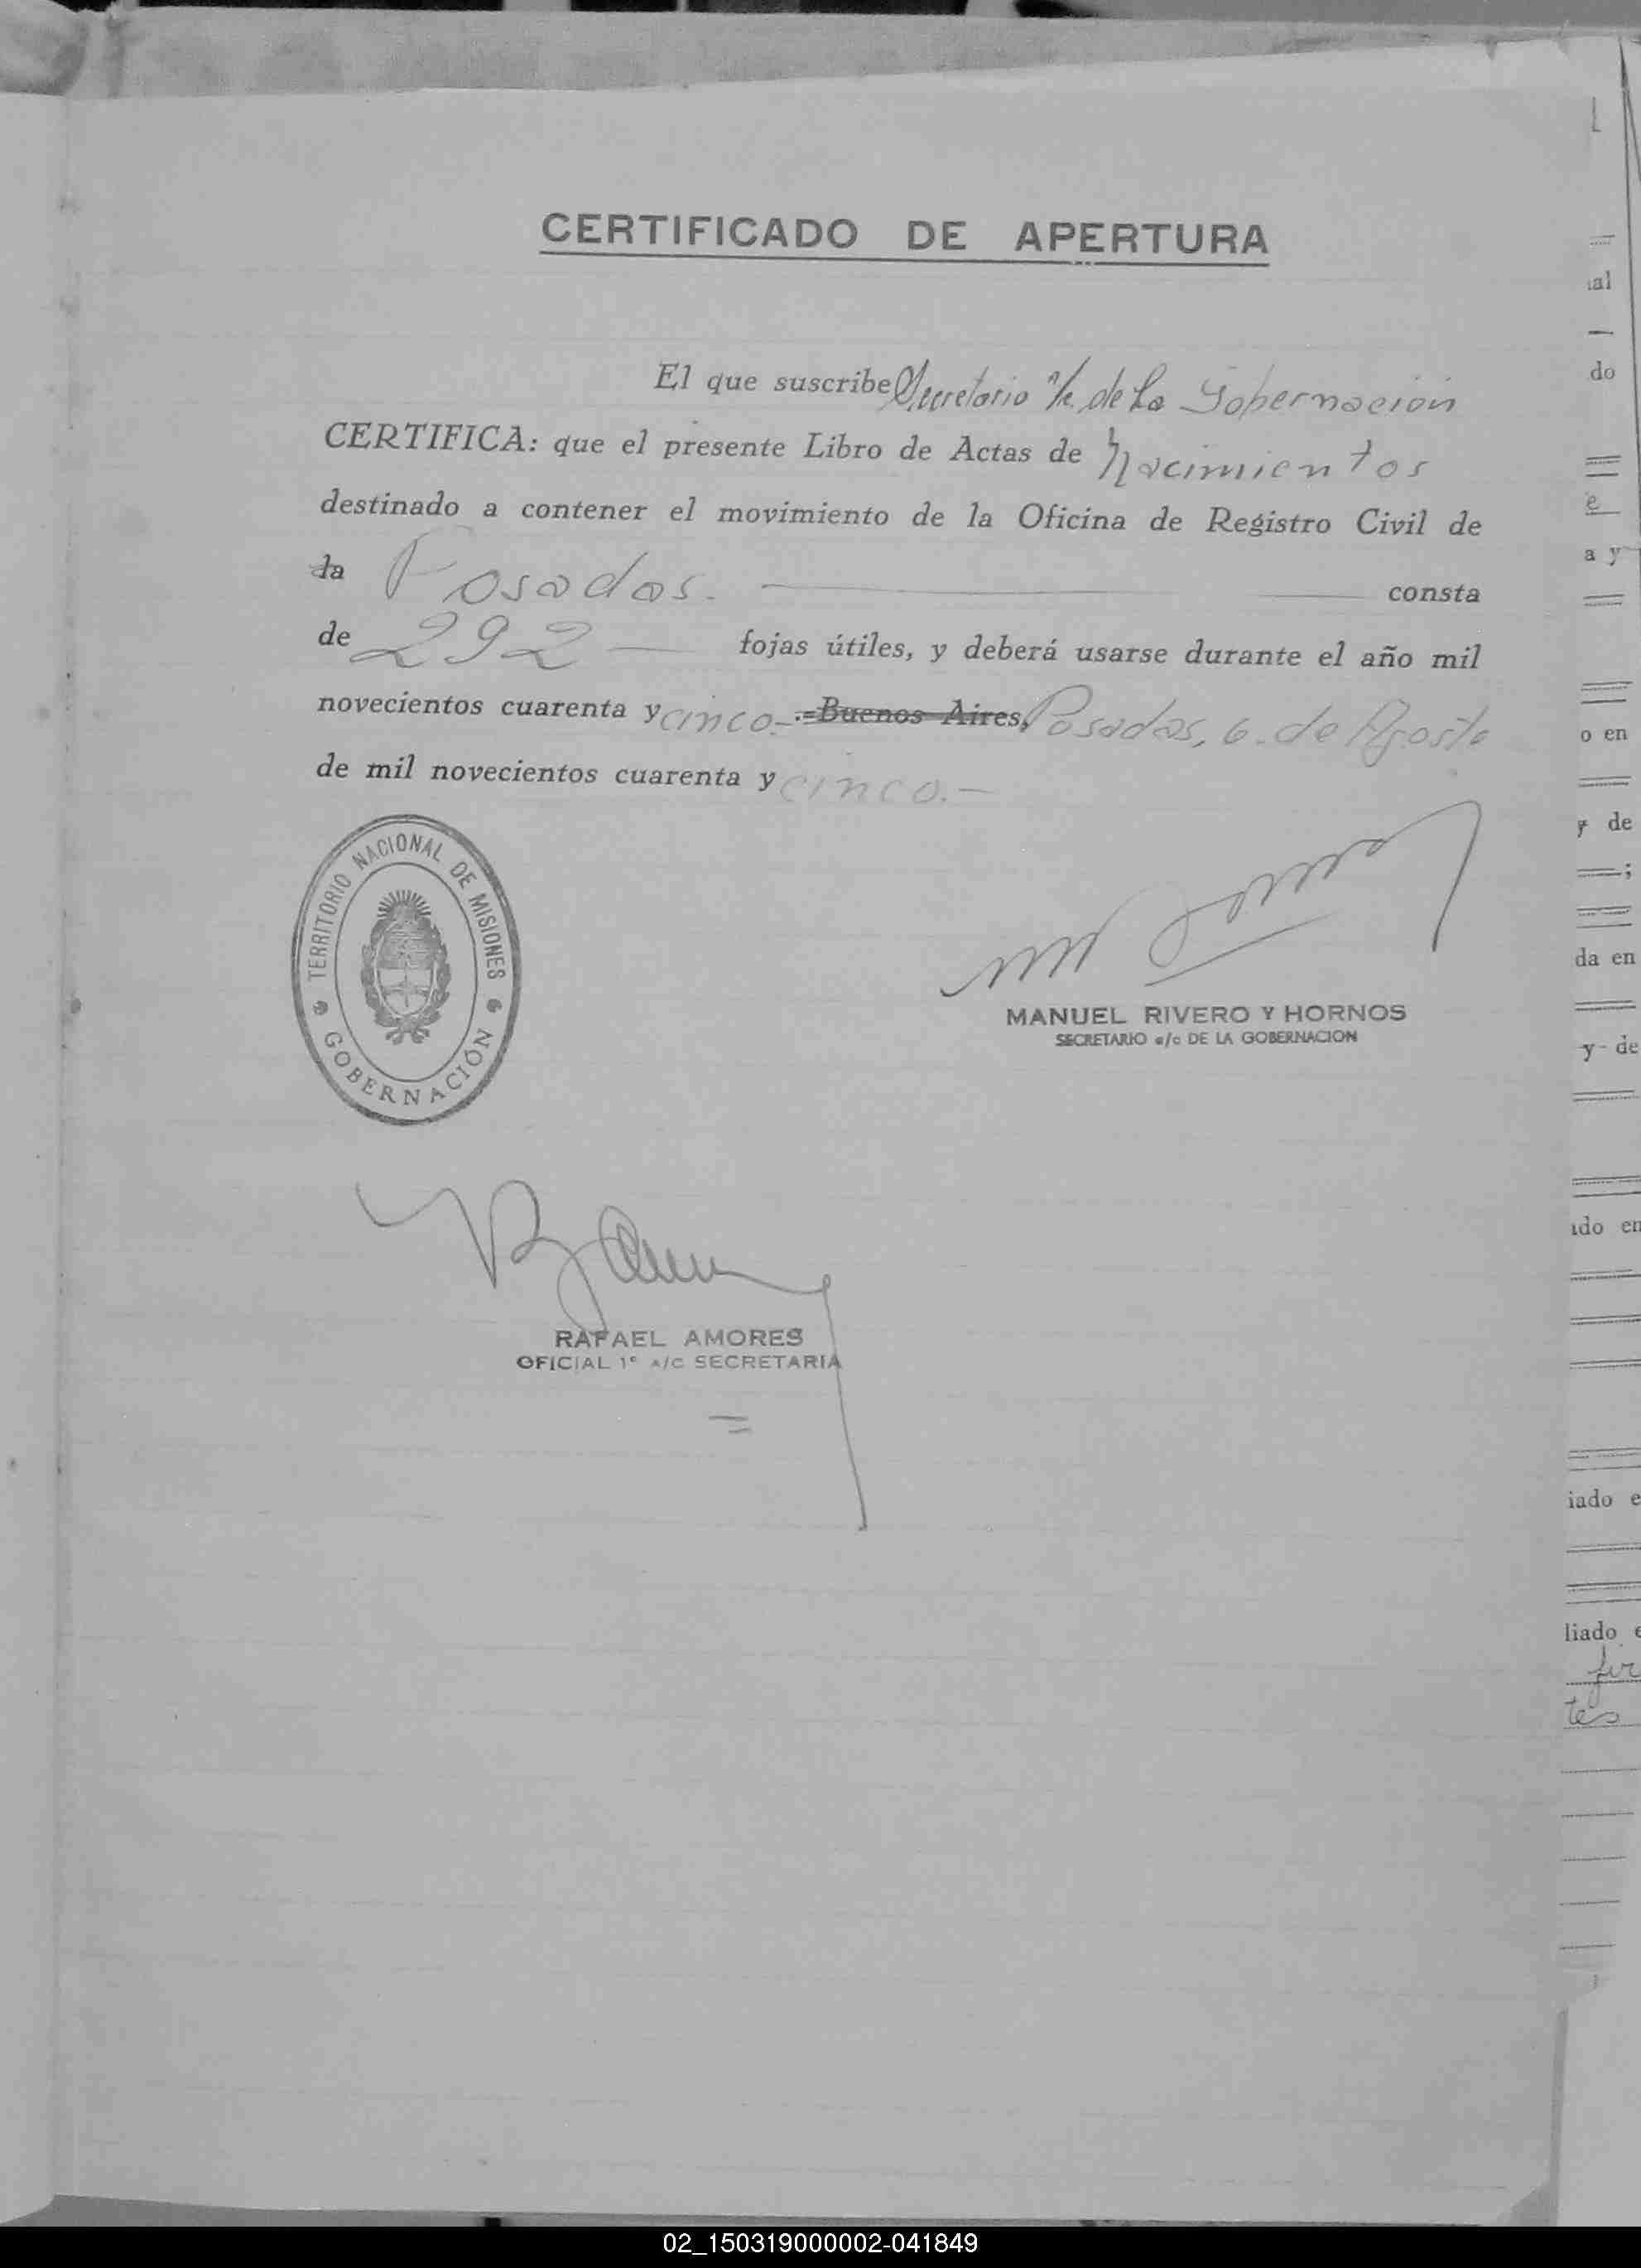 CERTIFICADO DE APERTURA
El que suscribe Secretario a/c. de la Gobernación
CERTIFICA: que el presente Libro de Actas de Nacimientos
destinado a contener el movimiento de la Oficina de Registro Civil de
la Posadas. consta
de 292 — fojas útiles, y deberá usarse durante el año mil
novecientos cuarenta y cinco.- Buenos Aires, Posadas, 6. de Agosto
de mil novecientos cuarenta y cinco.-
TERRITORIO NACIONAL DE MISIONES
GOBERNACIÓN
MANUEL RIVERO Y HORNOS
SECRETARIO a/c DE LA GOBERNACION
RAFAEL AMORES
OFICIAL 1° A/C SECRETARIA
al
do
e
a y
o en
y de
da en
y de
ado en
iado e
liado e
fir
tes
02_150319000002-041849